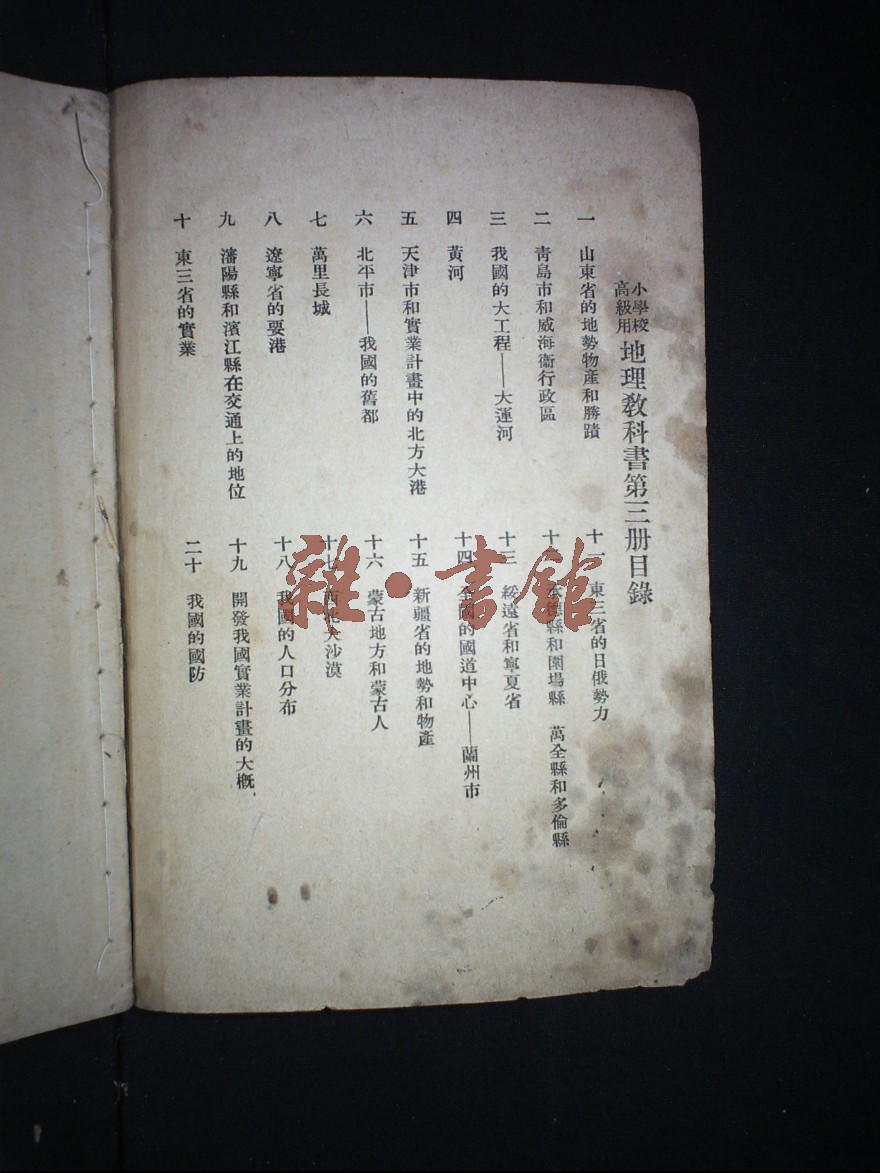 小學校高級用 地理教科書第三册目錄
一 山東省的地勢物產和勝蹟
二 青島市和威海衞行政區
三 我國的大工程——大運河
四 黃河
五 天津市和實業計畫中的北方大港
六 北平市——我國的舊都
七 萬里長城
八 遼寧省的要港
九 瀋陽縣和濱江縣在交通上的地位
十 東三省的實業
十一 東三省的日俄勢力
十二 承德縣和圍場縣 萬全縣和多倫縣
十三 綏遠省和寧夏省
十四 全國的國道中心——蘭州市
十五 新疆省的地勢和物產
十六 蒙古地方和蒙古人
十七 西北大沙漠
十八 我國的人口分布
十九 開發我國實業計畫的大概
二十 我國的國防
雜·書館